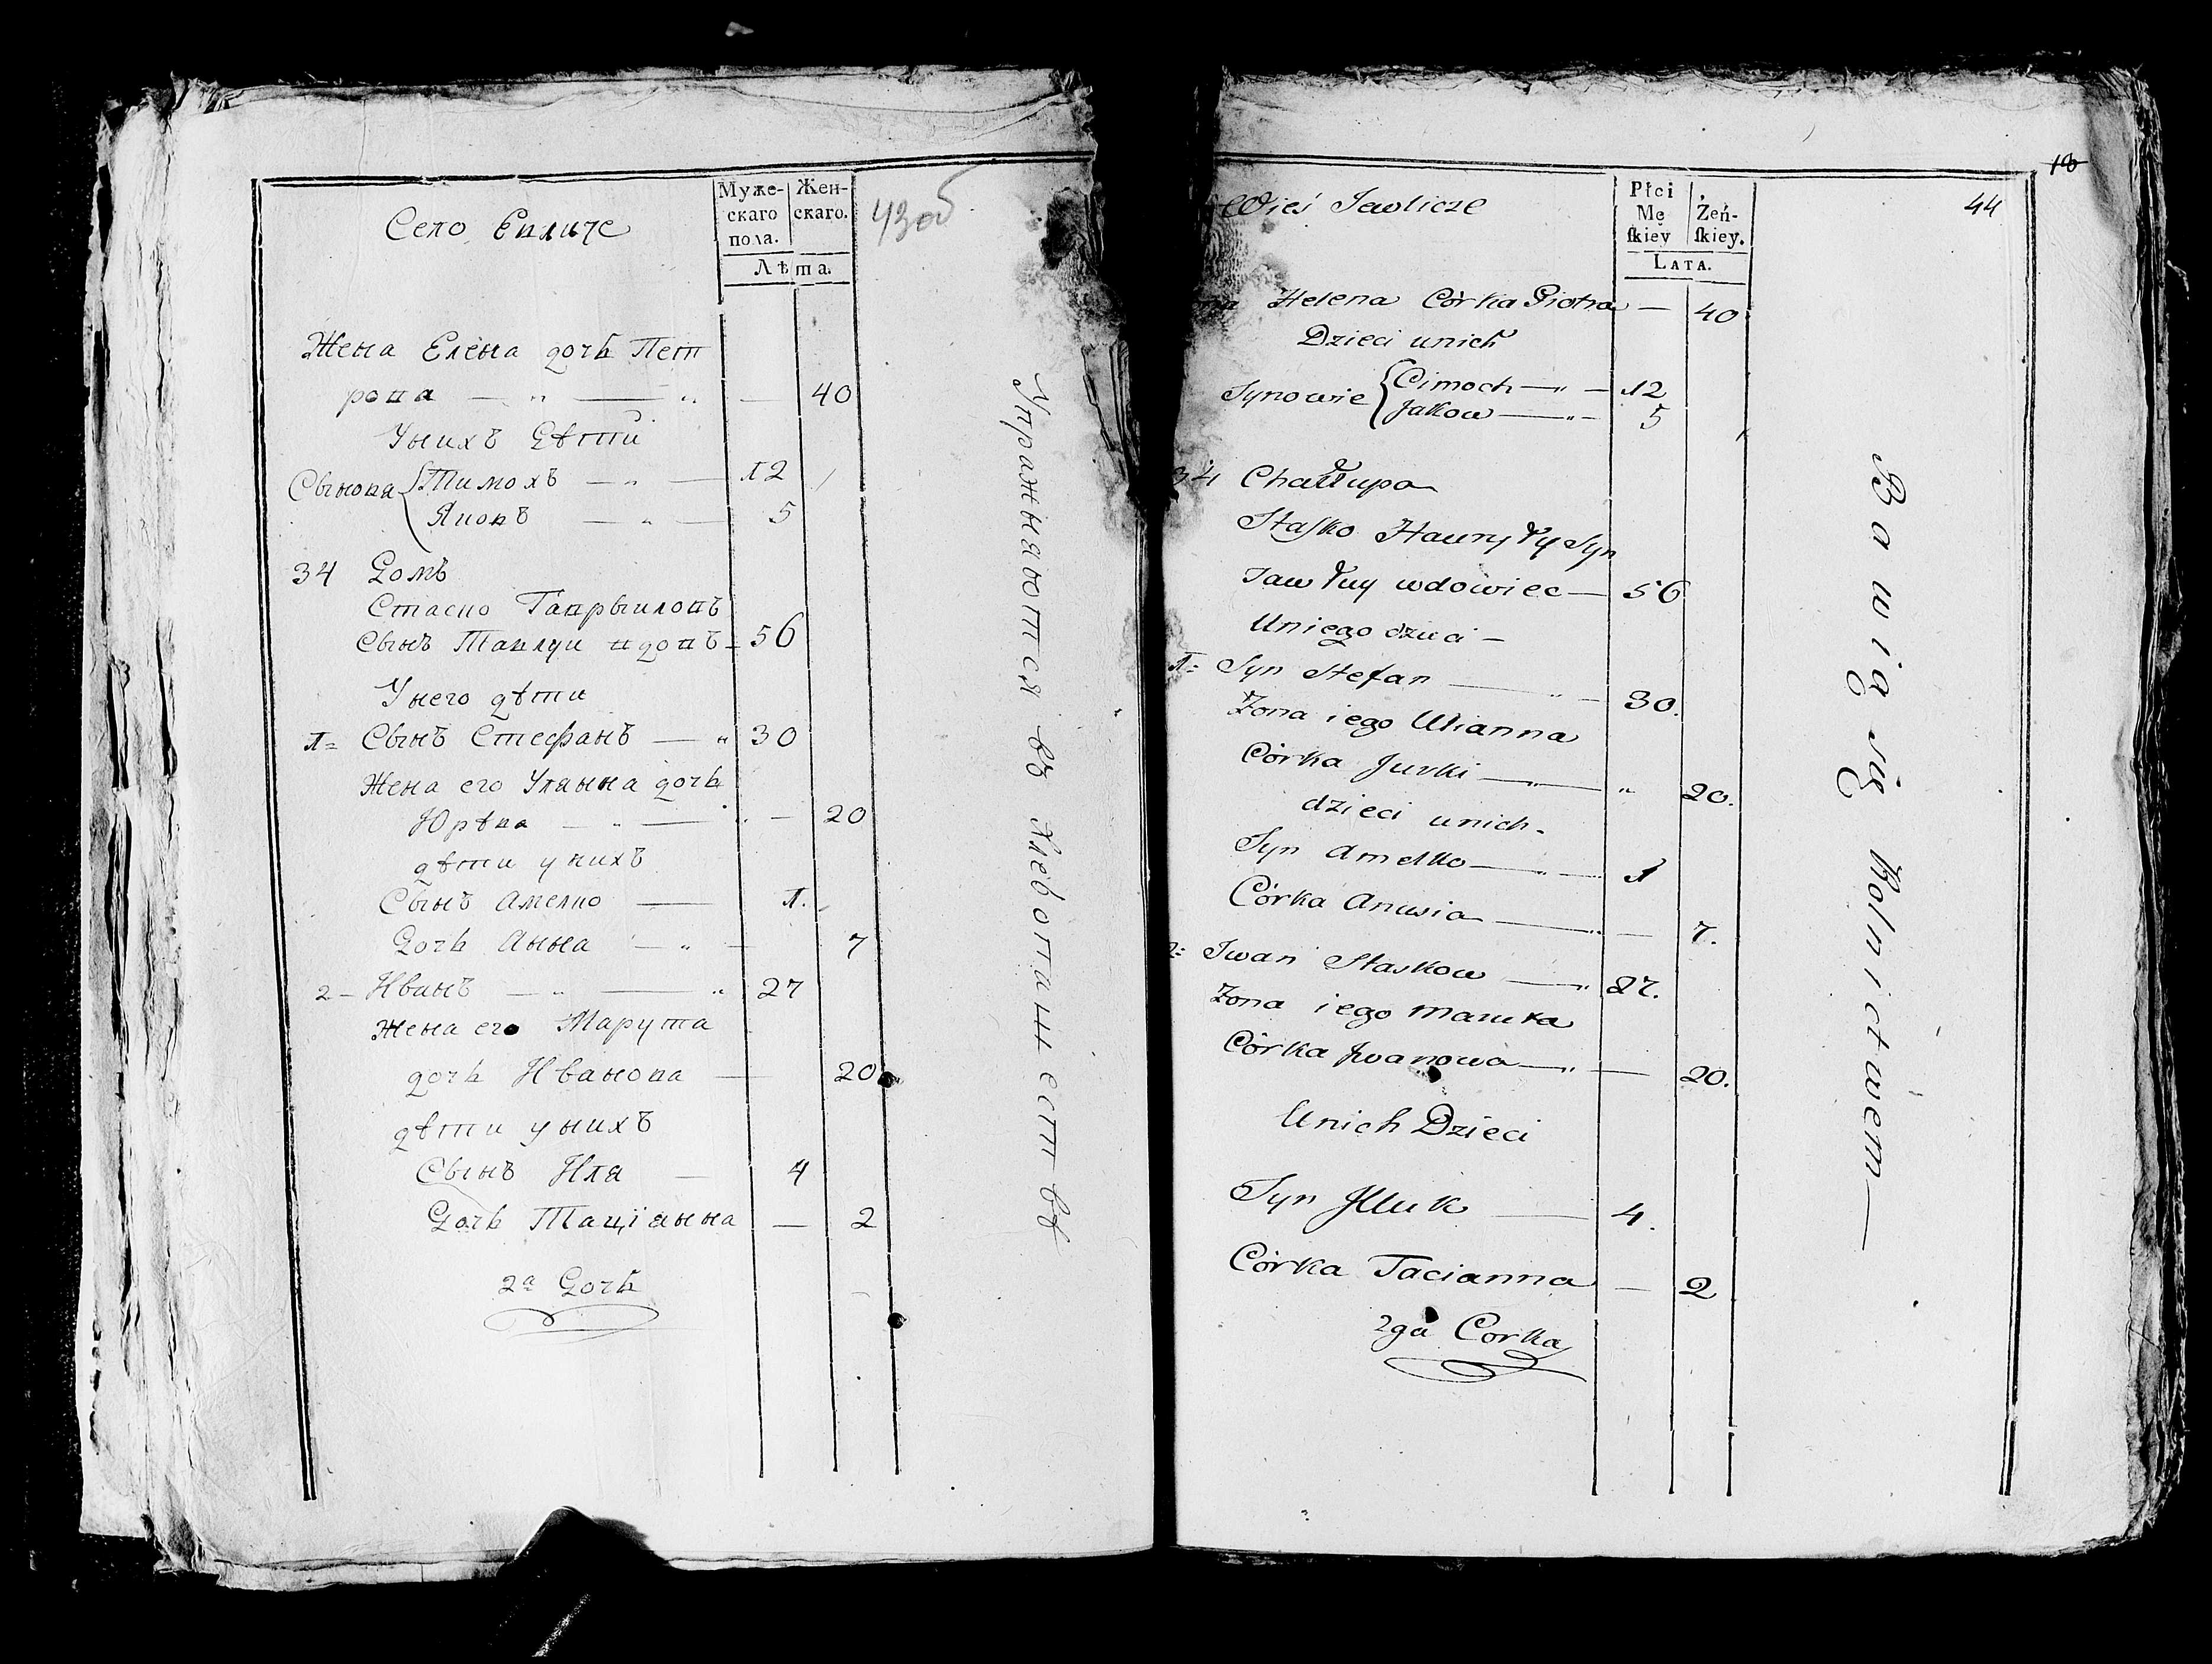 Село Евличе
Муже-
скаго
пола.
Жен-
скаго.
Лѣта.
43об
Жена Елена дочь Пет
рова — „ — „ — 40
У нихъ Дѣти
Сынова Тимохъ — „ — 12
Яковъ — „ — 5
34 Домъ
Стаско Гаврыловъ
Сынъ Павлуи вдовъ — 56
У него дѣти
1= Сынъ Стефанъ — „ 30
Жена его Уляна дочь
Юрѣва — „ — „ — 20
дѣти у нихъ
Сынъ Амелко — 1.
Дочь Анна — „ — 7
2 – Иванъ — „ — „ 27
Жена его Марута
дочь Иванова — 20
дѣти у нихъ
Сынъ Иля — 4
Дочь Таціанна — 2
2а Дочь
Упражняются въ хлебопашестве
Wieś Jewlicze
Płci
Mę
ſkiey
Żeń-
ſkiey.
LATA.
18
44
Helena Córka Piotra — 40
Dzieci unich
Synowie Cimoch — „ — 12
Jakow — „ — 5
34 Chałłupa
Staſko Hawryły Syn
Pawłuy wdowiec — 56
Uniego dzieci —
1= Syn Stefan — „ — 30.
Żona iego Ulianna
Córka Jurki — „ „ 20.
dzieci unich.
Syn Amelko — „ — 1
Córka Anusia — „ — 7.
2: Iwan Staskow — „ 27.
Żona iego Maruta
Córka Iwanowa — „ — 20.
Unich Dzieci
Syn Illuk — 4.
Córka Tacianna — 2
2ga Corka
Bawią się Rolnictwem —